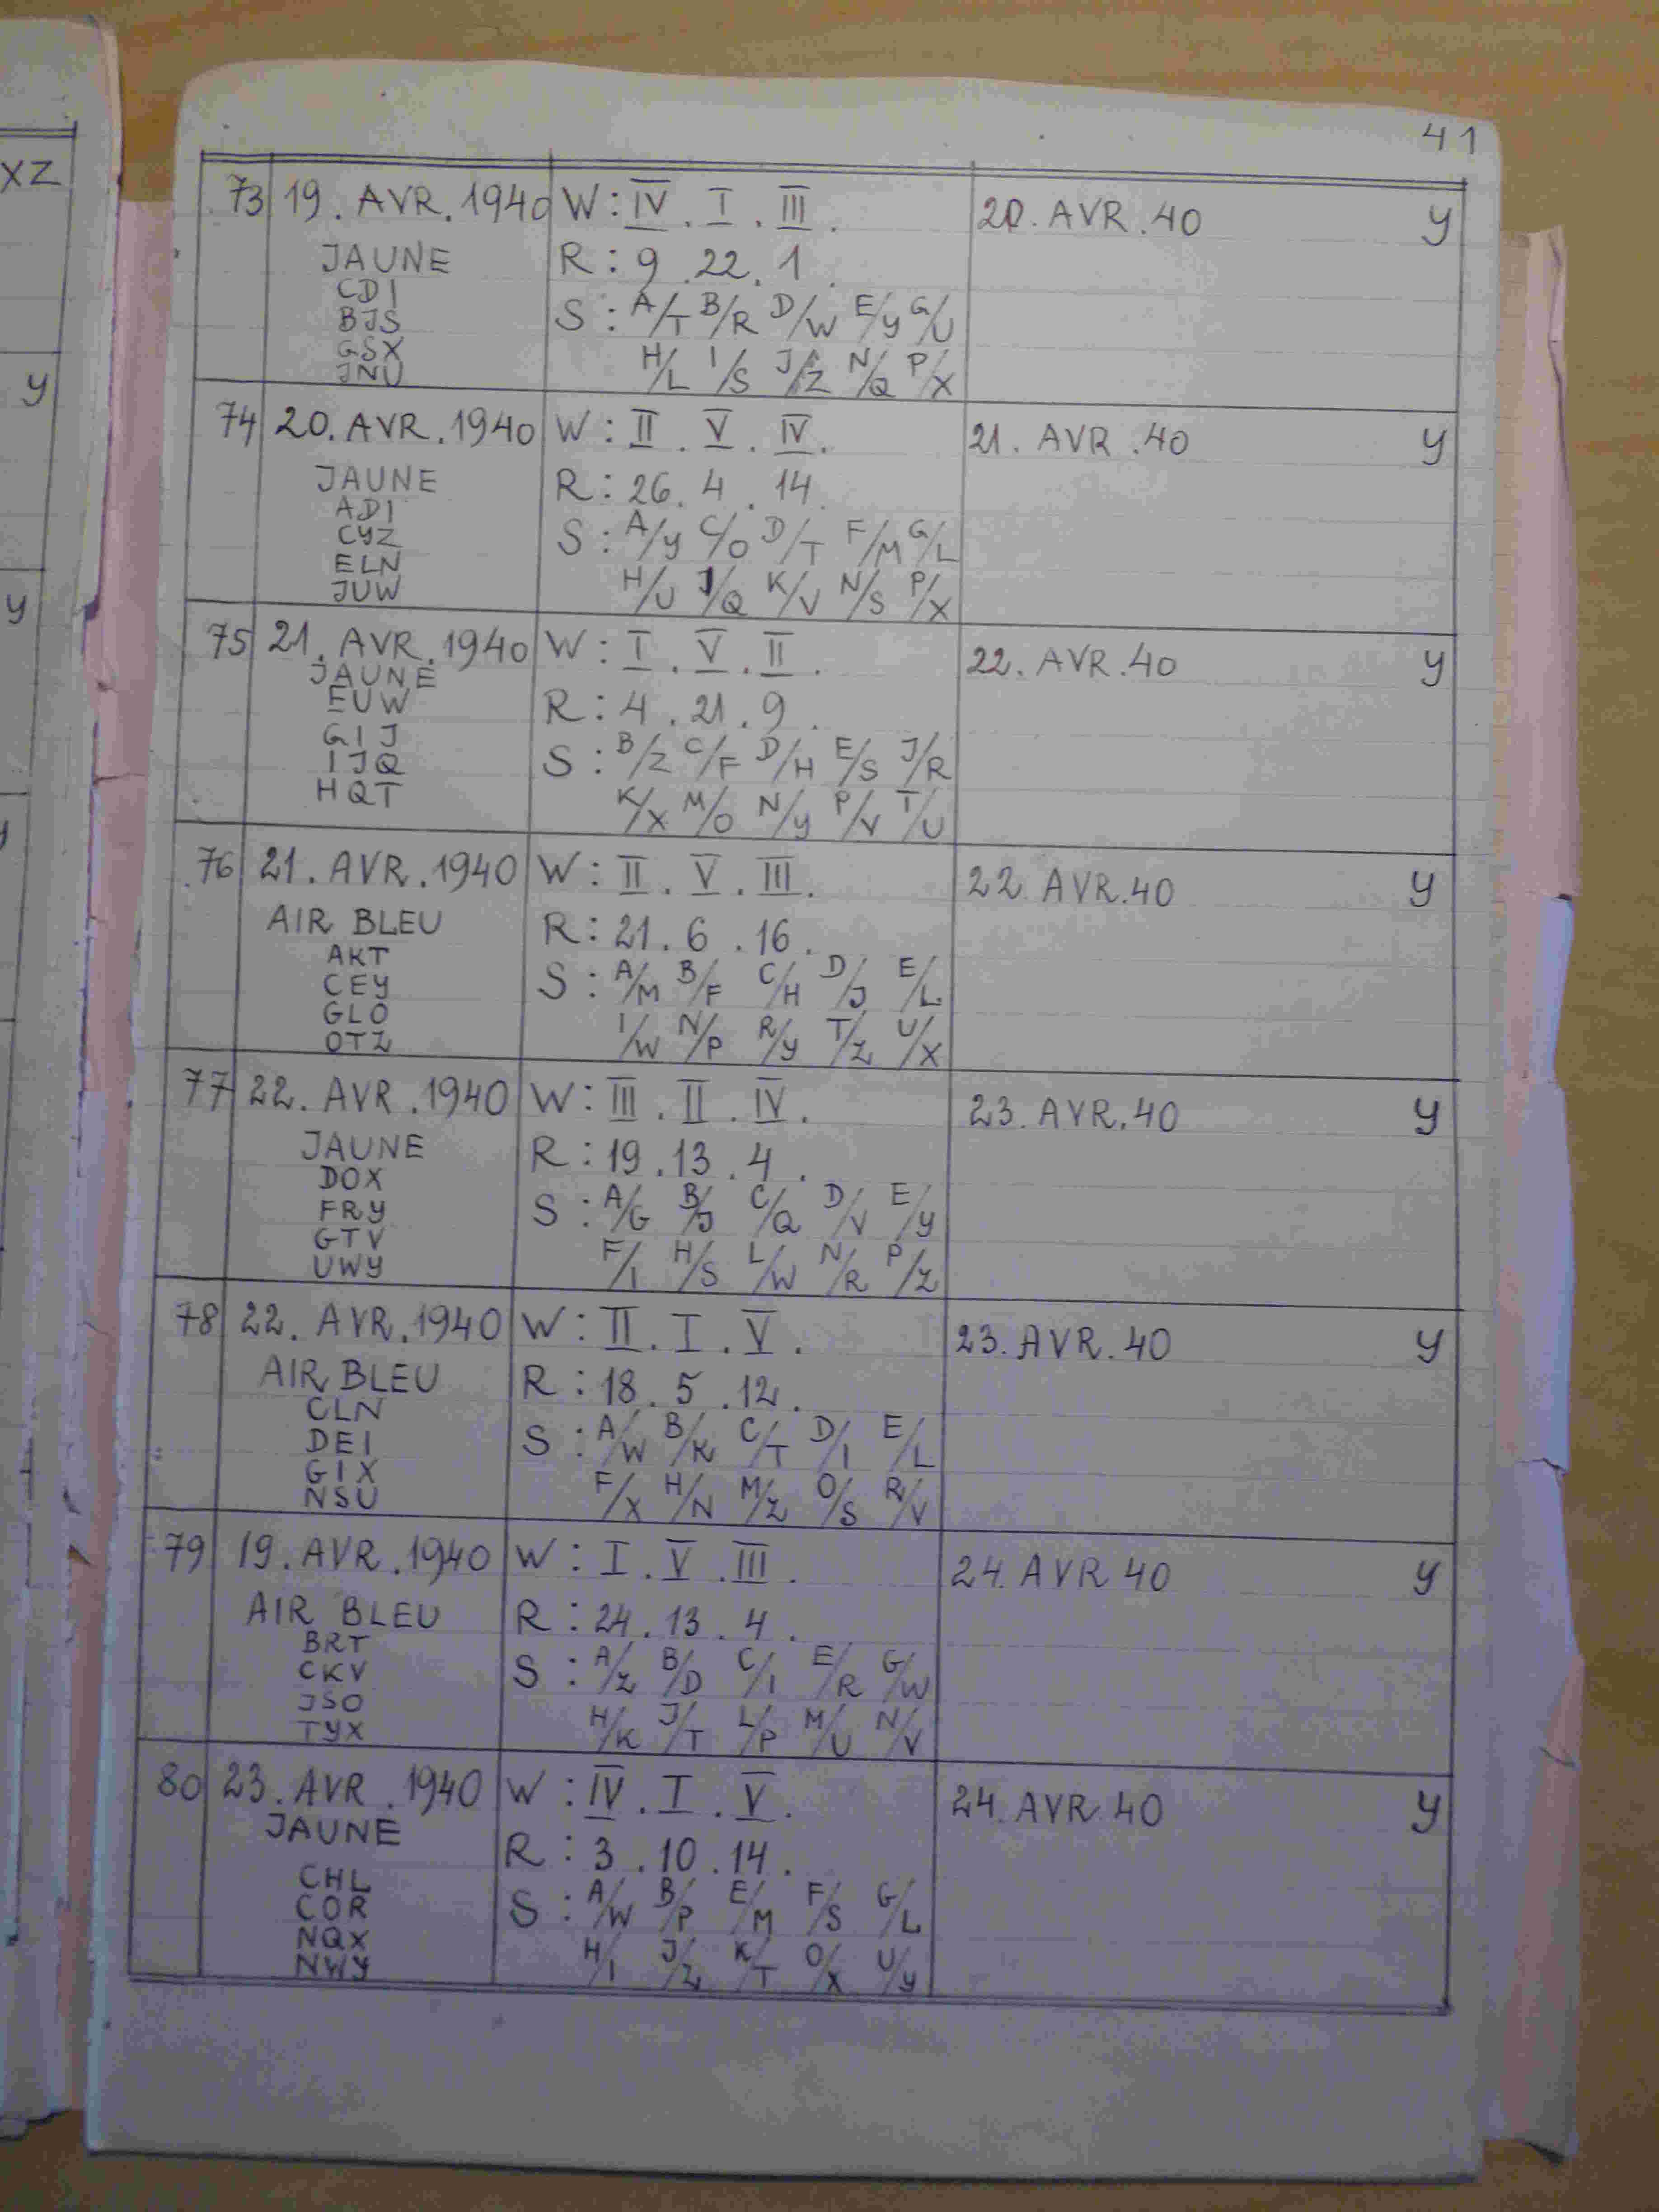 XZ
y
y
41
73 19. AVR. 1940 W: IV. I. III. 20. AVR. 40 y
JAUNE R: 9. 22. 1.
CDI
BJS S: A/T B/R D/W E/Y G/U
GSX
JNU H/L I/S J/Z N/Q P/X
74 20. AVR. 1940 W: II. V. IV. 21. AVR. 40 y
JAUNE R: 26. 4. 14
ADI
CYZ S: A/Y C/O D/T F/M G/L
ELN
JUW H/U J/Q K/V N/S P/X
75 21. AVR. 1940 W: I. V. II. 22. AVR. 40 y
JAUNE
EUW R: 4. 21. 9.
GIJ
IJQ S: B/Z C/F D/H E/S J/R
HQT K/X M/O N/Y P/V T/U
76 21. AVR. 1940 W: II. V. III. 22. AVR. 40 y
AIR BLEU R: 21. 6. 16.
AKT
CEY S: A/M B/F C/H D/J E/L
GLO
OTZ I/W N/P R/Y T/Z U/X
77 22. AVR. 1940 W: III. II. IV. 23. AVR. 40 y
JAUNE R: 19. 13. 4.
DOX
FRY S: A/G B/J C/Q D/V E/Y
GTV
UWY F/I H/S L/W N/R P/Z
78 22. AVR. 1940 W: II. I. V. 23. AVR. 40 y
AIR BLEU R: 18. 5. 12.
CLN
DEI S: A/W B/K C/T D/I E/L
GIX
NSU F/X H/N M/Z O/S R/V
79 19. AVR. 1940 W: I. V. III. 24. AVR 40 y
AIR BLEU R: 24. 13. 4.
BRT
CKV S: A/Z B/D C/I E/R G/W
JSO
TYX H/K J/T L/P M/U N/V
80 23. AVR. 1940 W: IV. I. V. 24. AVR. 40 y
JAUNE R: 3. 10. 14.
CHL
COR S: A/W B/P E/M F/S G/L
NQX
NWY H/I J/Z K/T O/X U/Y